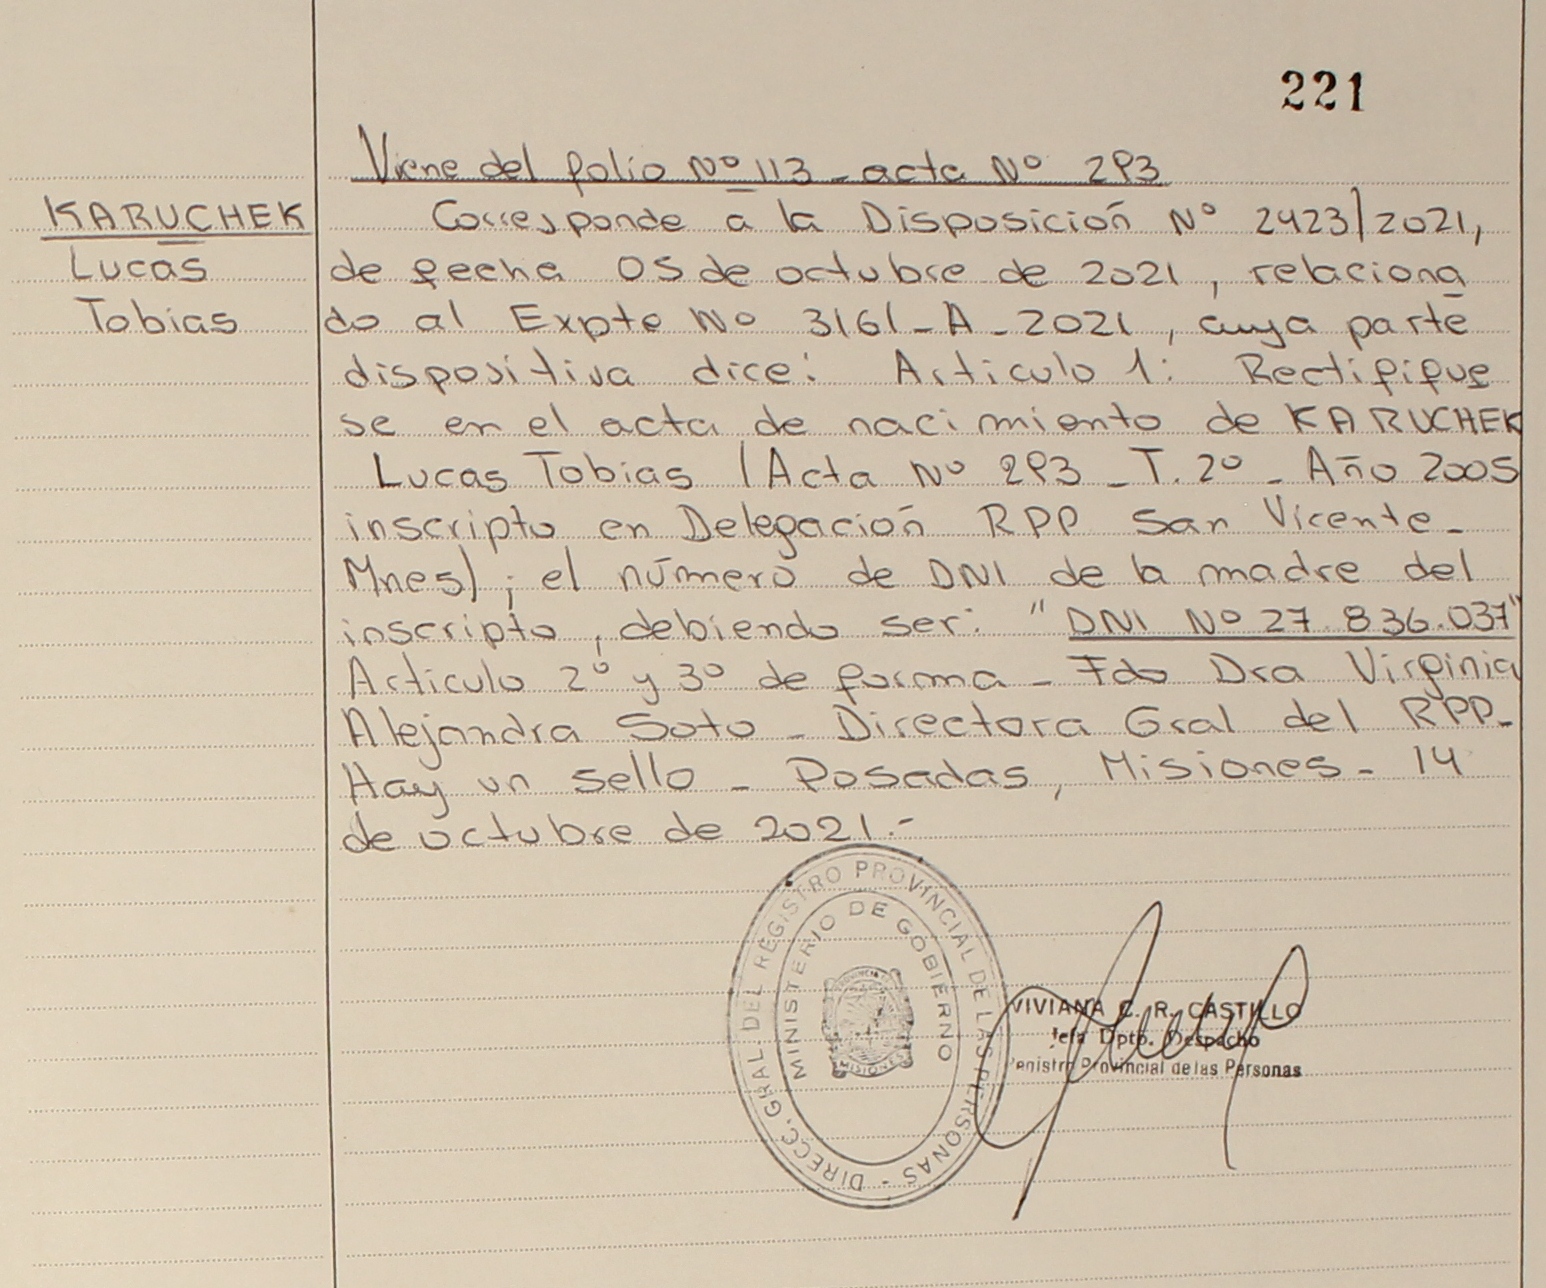 221
Viene del folio Nº 113 - acta Nº 293
KARUCHEK
Lucas
Tobias
Corresponde a la Disposición Nº 2423/2021,
de fecha 05 de octubre de 2021, relaciona
do al Expte Nº 3161-A-2021, cuya parte
dispositiva dice: Articulo 1: Rectifique
se en el acta de nacimiento de KARUCHEK
Lucas Tobias (Acta Nº 293 - T. 2º - Año 2005
inscripto en Delegación RPP San Vicente -
Mnes); el número de DNI de la madre del
inscripto, debiendo ser: "DNI Nº 27.836.037"
Articulo 2º y 3º de forma - Fdo Dra Virginia
Alejandra Soto - Directora Gral del RPP -
Hay un sello - Posadas, Misiones - 14
de octubre de 2021.-
DIRECC. GRAL. DEL REGISTRO PROVINCIAL DE LAS PERSONAS -
MINISTERIO DE GOBIERNO
PROVINCIA
MISIONES
VIVIANA C. R. CASTILLO
Jefa Dpto. Despacho
Registro Provincial de las Personas